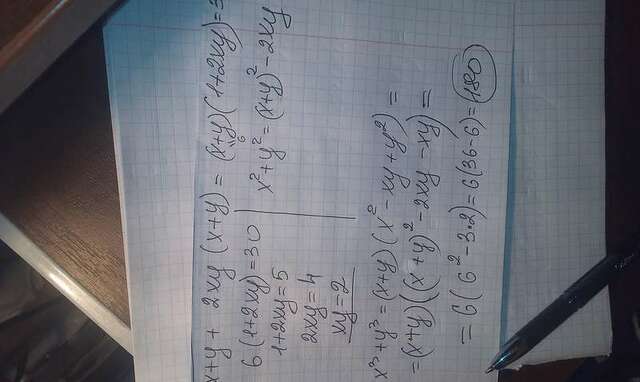 x+y + 2xy (x+y) = (x+y)(1+2xy)=3
"6
6(1+2xy)=30
1+2xy=5
2xy=4
xy=2
x²+y²=(x+y)²-2xy
x³+y³=(x+y)(x²-xy+y²)=
=(x+y)((x+y)²-2xy-xy)=
=6(6²-3·2)=6(36-6)=180